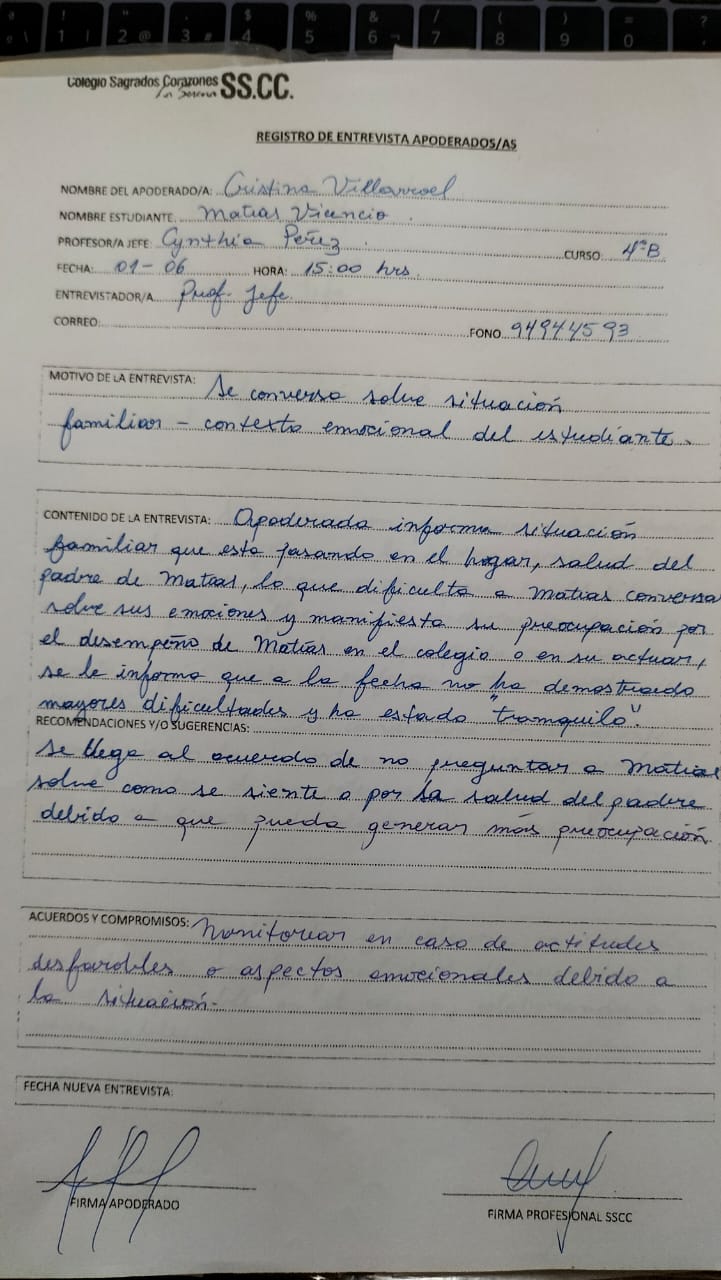 Colegio Sagrados Corazones SS.CC.
La Serena
REGISTRO DE ENTREVISTA APODERADOS/AS
NOMBRE DEL APODERADO/A: Cristina Villarroel
NOMBRE ESTUDIANTE: Matías Vicencio
PROFESOR/A JEFE: Cynthia Pérez CURSO: 4°B
FECHA: 01-06 HORA: 15:00 hrs.
ENTREVISTADOR/A Prof. Jefe
CORREO: FONO 94944593
MOTIVO DE LA ENTREVISTA: Se conversa sobre situación
familiar - contexto emocional del estudiante.
CONTENIDO DE LA ENTREVISTA: Apoderada informa situación
familiar que esta pasando en el hogar, salud del
padre de Matías, lo que dificulta a Matías conversa
sobre sus emociones y manifiesta su preocupación por
el desempeño de Matías en el colegio o en su actuar,
se le informa que a la fecha no ha demostrado
mayores dificultades y ha estado "tranquilo".
RECOMENDACIONES Y/O SUGERENCIAS:
Se llega al acuerdo de no preguntar a Matías
sobre como se siente o por la salud del padre
debido a que pueda generar más preocupación
ACUERDOS Y COMPROMISOS: Monitorear en caso de actitudes
desfarobles o aspectos emocionales debido a
la situación.
FECHA NUEVA ENTREVISTA:
FIRMA APODERADO
FIRMA PROFESIONAL SSCC